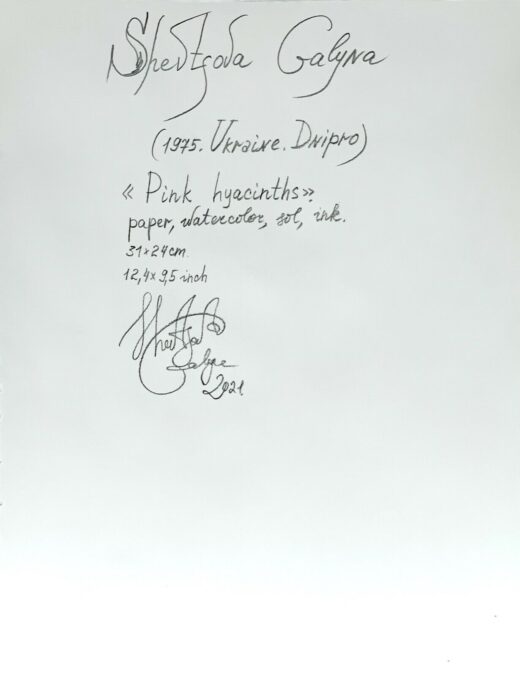 Shevtsova Galyna
(1975. Ukraine. Dnipro)
« Pink hyacinths»
paper, watercolor, sol, ink.
31×24cm.
12,4×9,5 inch
Shevtsova
Galyna
2021